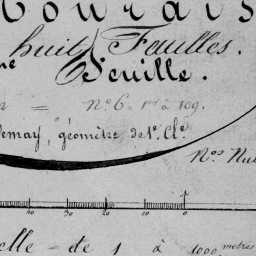 huit Feuilles.
ne Feuille.
= N° 6. 1er à 109.
emay, géomètre de 1e. Cle
Nos Nu
30 20 10 0
elle - de 1 à 1000 mètres